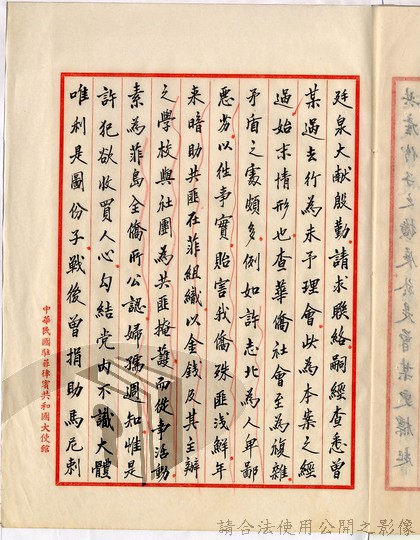 廷泉大献殷勤請求聯絡嗣經查悉曾
某過去行為未予理會此為本案之經
過始末情形也查華僑社會至為複雜
矛盾之處頗多例如許志北為人卑鄙
惡劣以往事實貽害我僑殊匪淺鮮年
來暗助共匪在菲組織以金錢及其主辦
之學校與社團為共匪掩護而從事活動
素為菲島全僑所公認婦孺週知惟是
許犯欲收買人心勾結党内不識大體
唯利是圖份子戰後曾捐助馬尼剌
中華民國駐菲律賓共和國大使館
請合法使用公開之影像